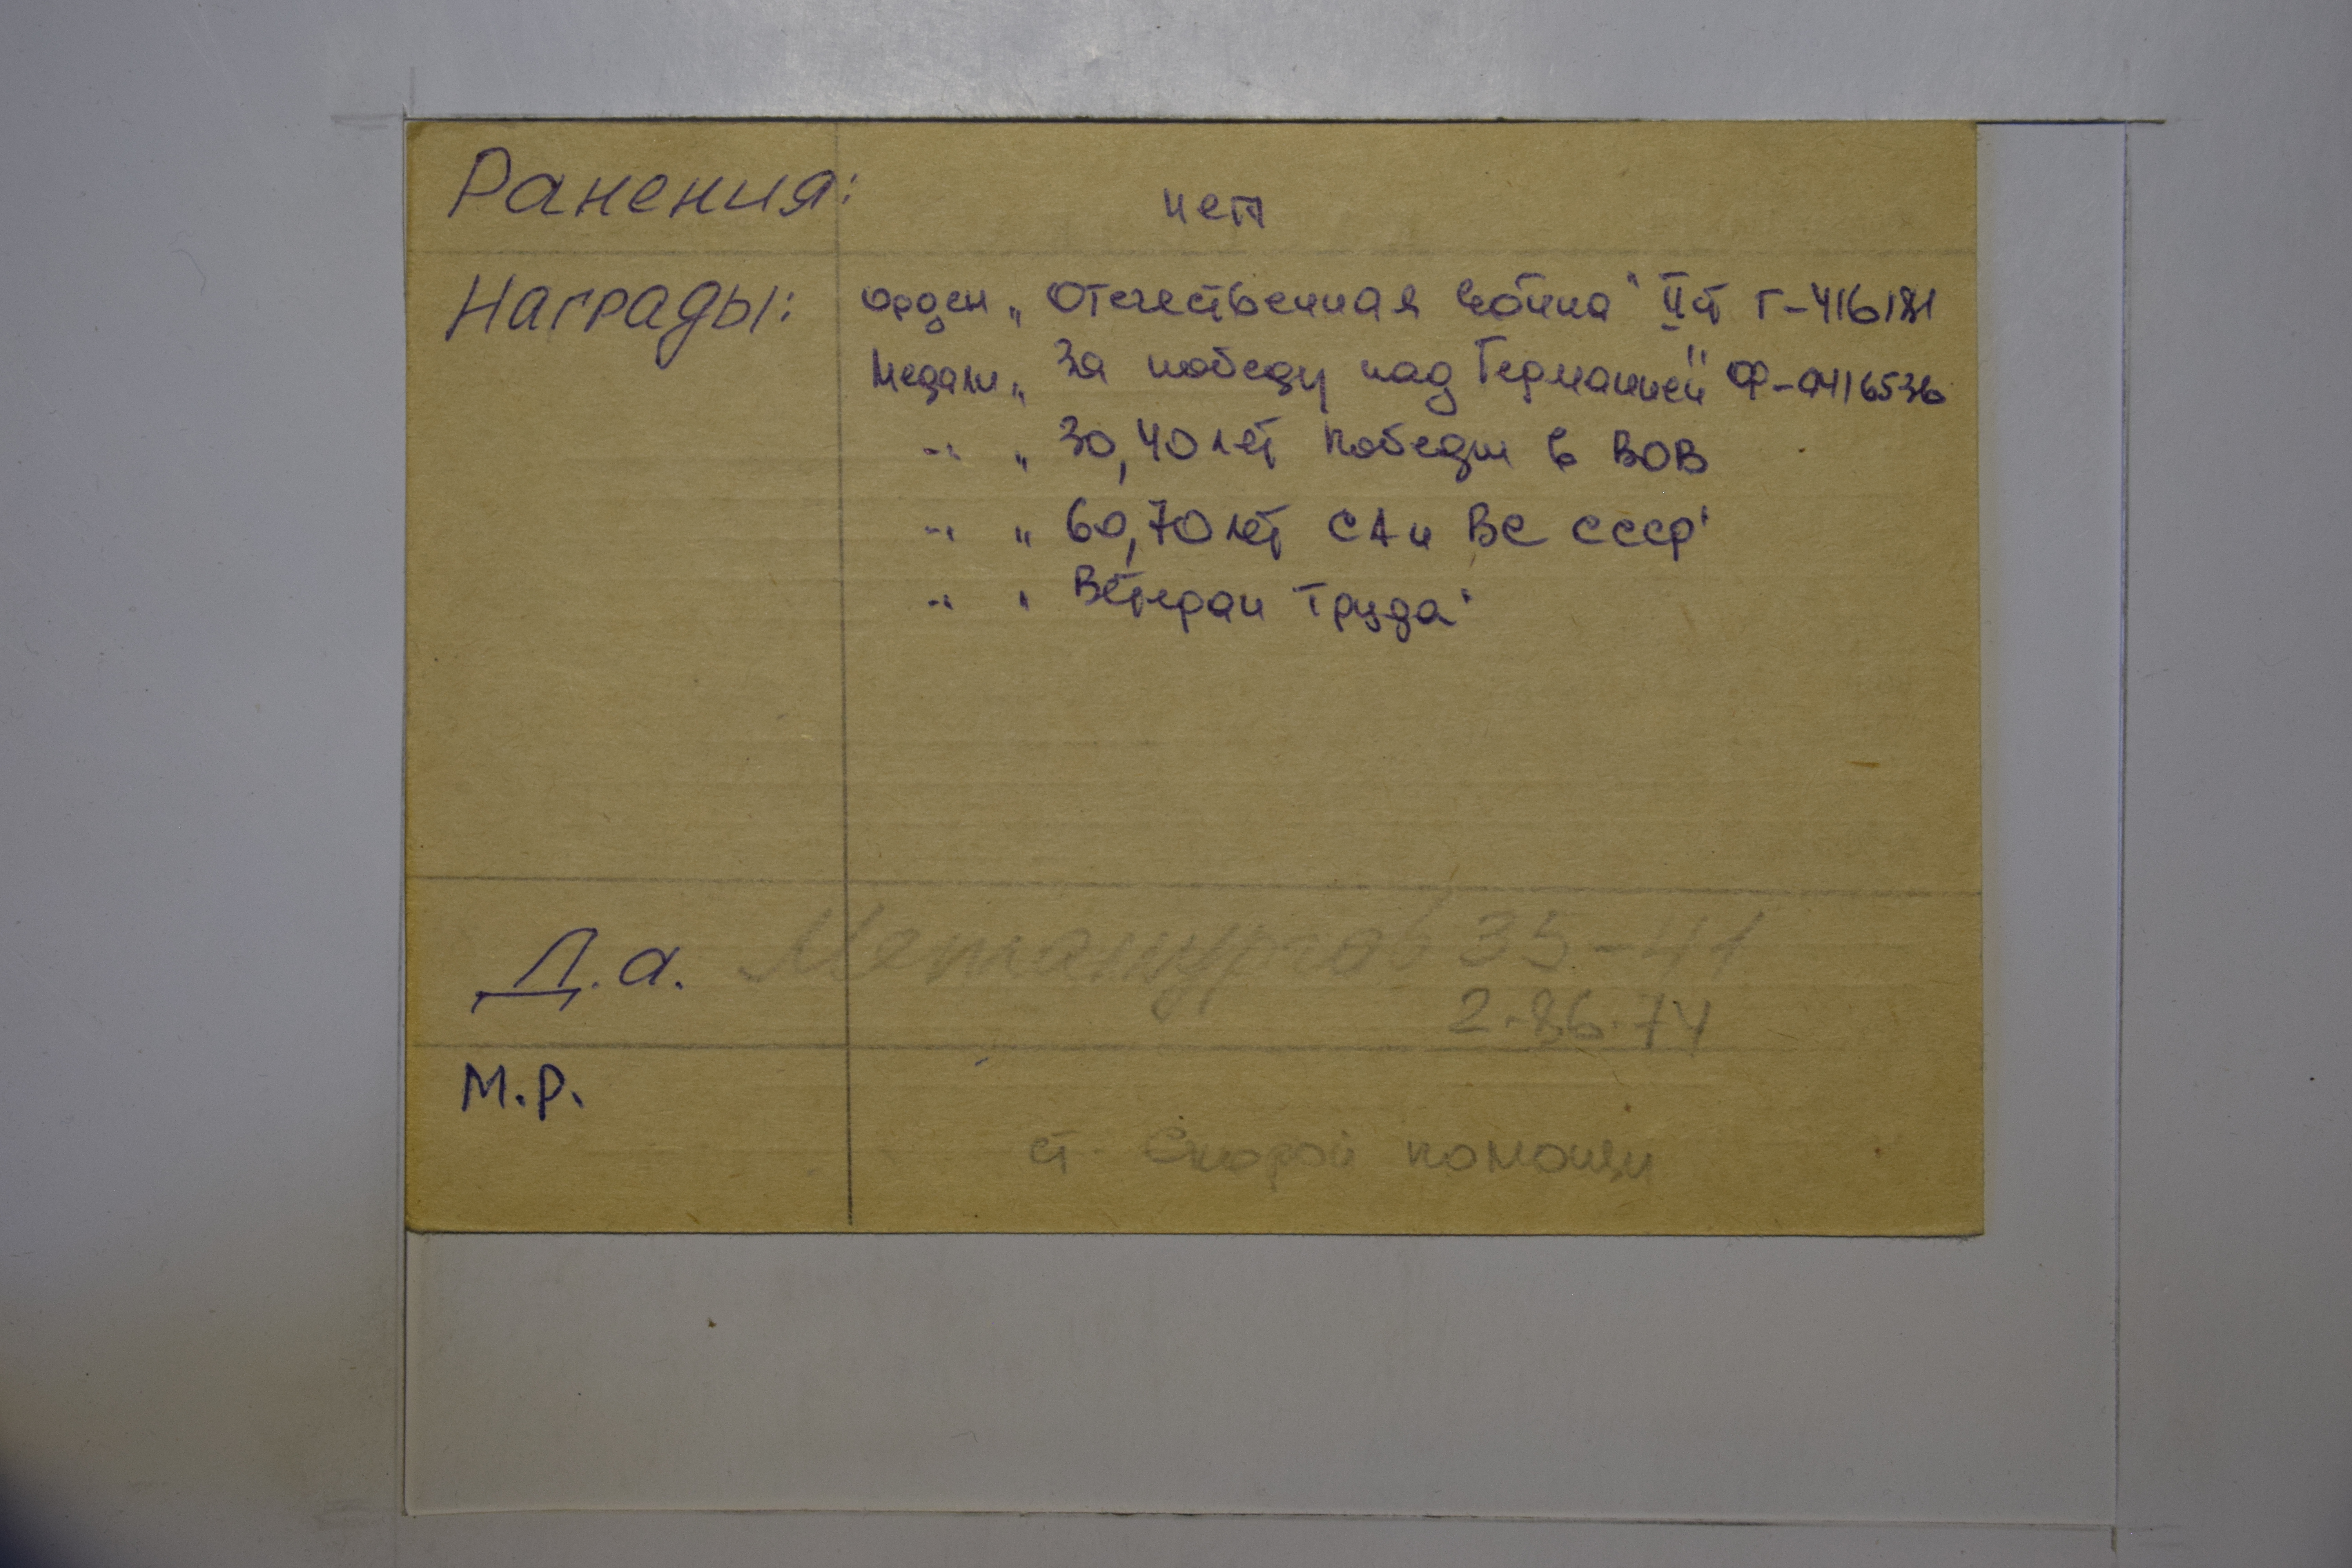 Ранения: нет
Награды: Орден „Отечественная война" II ст Г-416181
Медали „За победу над Германией" Ф-0416536
-"- „30,40 лет Победы в ВОВ
-"- „60,70 лет СА и ВС СССР"
-"- „Ветеран труда"
Д.а. Металлургов 35-41
2-86-74
М.Р.
ст. Скорой помощи